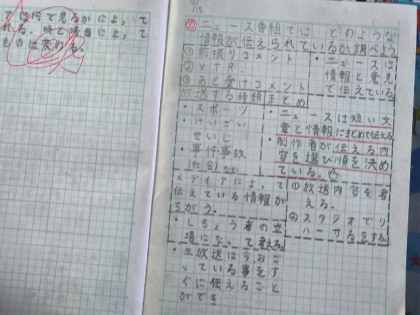 アは何で見るかによって
れる。時と場合によって
ものは変わる。
11/15
ニュース番組では、どのような
情報が伝えられているか調べよう
①前振りコメント
②VTR
③あと受けコメント
放送する種類まとめ
・スポーツ
・けいざい
・せいじ
・事件事故
(社会)など
メディアによって
伝えている情報が
ちがう。
・しちょう者の立
場になって考える。
・生放送は今おこ
っている事をす
ぐに伝えること
ができ
・ニュースは
情報と意見
で伝えている
・ニュースは短い文
章と情報にまとめて伝える
制作者が伝える内
容を選び順を決め
ている。
①放送内容を考
える。
②スタジオでリ
ハーサルをする